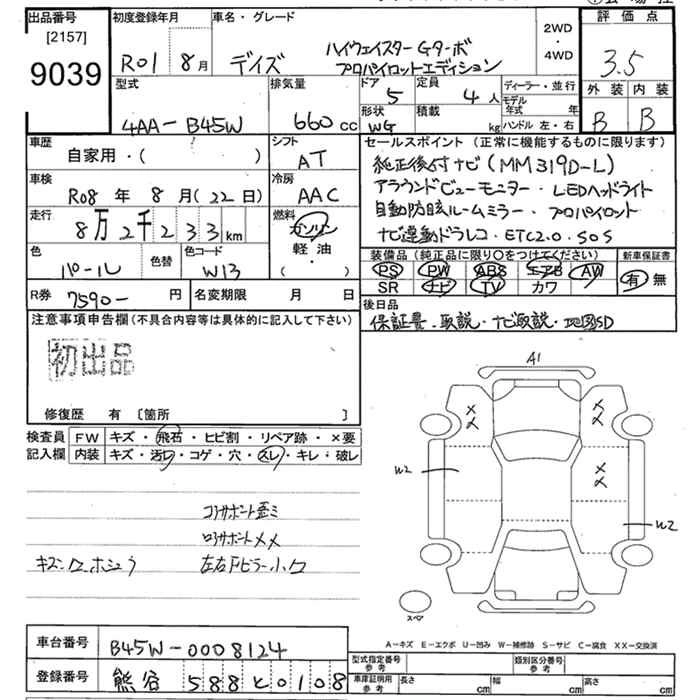 出品番号 初度登録年月 車名・グレード 評価点
[2157]
9039
R01 8月 デイズ ハイウェイスターGターボ
プロパイロットエディション
2WD・4WD
3.5
外装 内装
B B
型式 排気量 ドア 定員 ディーラー・並行
4AA-B45W 660cc 5 4人
モデル年式 年
形状 積載 ハンドル 左・右
WG kg
車歴 シフト セールスポイント(正常に機能するものに限ります)
自家用・( ) AT 純正後付ナビ(MM319D-L)
車検 冷房 アラウンドビューモニター・LEDヘッドライト
R08年 8月(22日) AAC 自動防眩ルームミラー・プロパイロット
走行 燃料 ナビ連動ドラレコ・ETC2.0・SOS
8万2千233km ガソリン
軽・油
( )
色 色替 色コード
パール W13
装備品(純正品に限り○をつけてください) 新車保証書
PS PW ABS エアB AW 有・無
SR ナビ TV カワ
R券 7590- 円 名変期限 月 日
後日品
保証書・取説・ナビ取説・地図SD
注意事項申告欄(不具合内容等は具体的に記入して下さい)
初出品
修復歴 有 〔箇所 〕
検査員 FW キズ・飛石・ヒビ割・リペア跡・×要
記入欄 内装 キズ・汚れ・コゲ・穴・スレ・キレ・破レ
A1
W2
W2
コアサポート歪ミ
ロアサポートメメ
キズ・ワ・ホシュウ
スペア
A-キズ E-エクボ U-凹み W-補修跡 S-サビ C-腐食 XX-交換済
車台番号 B45W-0008124
型式指定番号 参考 類別区分番号 参考
登録番号 熊谷 588 と0108
車庫証明用 参考 長さ cm 幅 cm 高さ cm